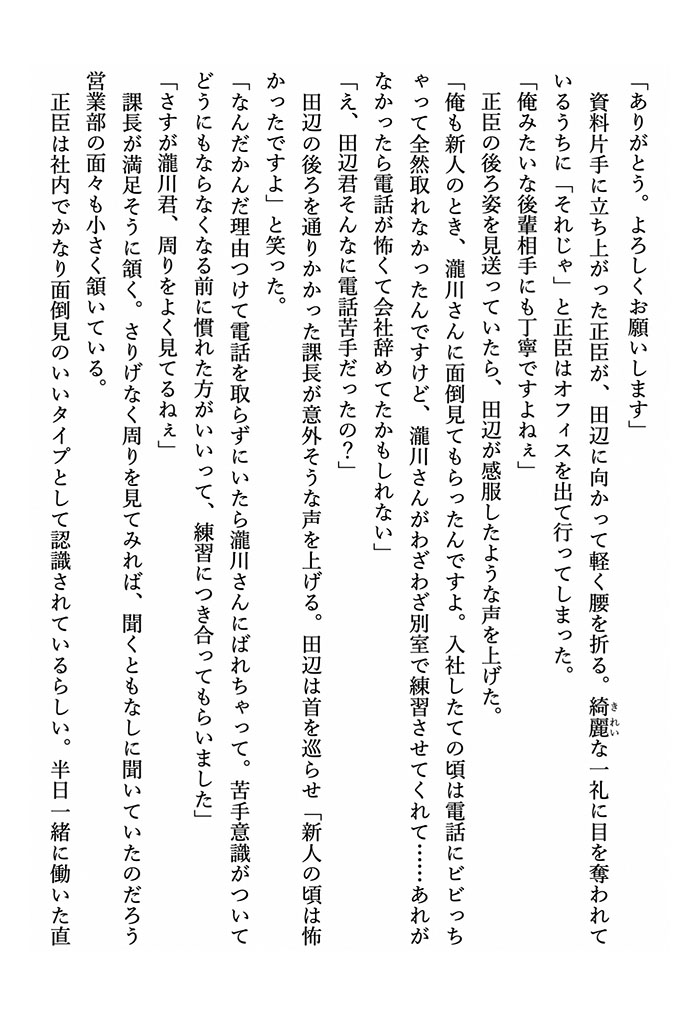 「ありがとう。よろしくお願いします」
資料片手に立ち上がった正臣が、田辺に向かって軽く腰を折る。綺麗な一礼に目を奪われて
きれい
いるうちに「それじゃ」と正臣はオフィスを出て行ってしまった。
「俺みたいな後輩相手にも丁寧ですよねぇ」
正臣の後ろ姿を見送っていたら、田辺が感服したような声を上げた。
「俺も新人のとき、瀧川さんに面倒見てもらったんですよ。入社したての頃は電話にビビっち
ゃって全然取れなかったんですけど、瀧川さんがわざわざ別室で練習させてくれて……あれが
なかったら電話が怖くて会社辞めてたかもしれない」
「え、田辺君そんなに電話苦手だったの？」
田辺の後ろを通りかかった課長が意外そうな声を上げる。田辺は首を巡らせ「新人の頃は怖
かったですよ」と笑った。
「なんだかんだ理由つけて電話を取らずにいたら瀧川さんにばれちゃって。苦手意識がついて
どうにもならなくなる前に慣れた方がいいって、練習につき合ってもらいました」
「さすが瀧川君、周りをよく見てるねぇ」
課長が満足そうに頷く。さりげなく周りを見てみれば、聞くともなしに聞いていたのだろう
営業部の面々も小さく頷いている。
正臣は社内でかなり面倒見のいいタイプとして認識されているらしい。半日一緒に働いた直